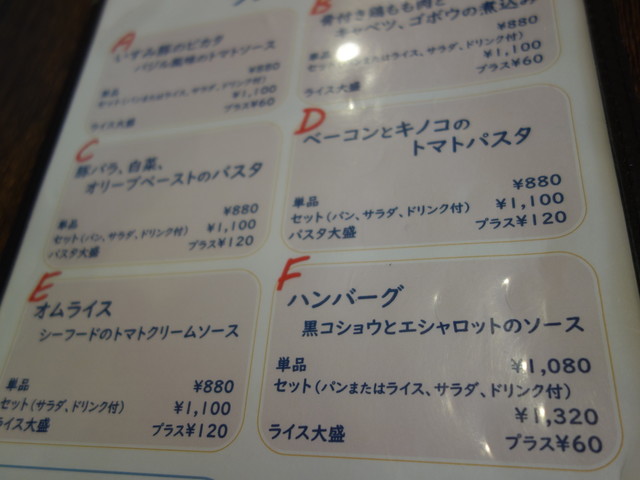 A
いすみ豚のピカタ
バジル風味のトマトソース
単品 ¥880
セット(パンまたはライス、サラダ、ドリンク付) ¥1,100
ライス大盛 プラス¥60
B
骨付き鶏もも肉と
キャベツ、ゴボウの煮込み
単品 ¥880
セット(パンまたはライス、サラダ、ドリンク付)
¥1,100
ライス大盛 プラス¥60
C
豚バラ、白菜、
オリーブペーストのパスタ
単品 ¥880
セット(パン、サラダ、ドリンク付) ¥1,100
パスタ大盛 プラス¥120
D
ベーコンとキノコの
トマトパスタ
単品 ¥880
セット(パン、サラダ、ドリンク付) ¥1,100
パスタ大盛 プラス¥120
E
オムライス
シーフードのトマトクリームソース
単品 ¥880
セット(サラダ、ドリンク付) ¥1,100
ライス大盛 プラス¥120
F
ハンバーグ
黒コショウとエシャロットのソース
単品 ¥1,080
セット(パンまたはライス、サラダ、ドリンク付)
¥1,320
ライス大盛 プラス¥60